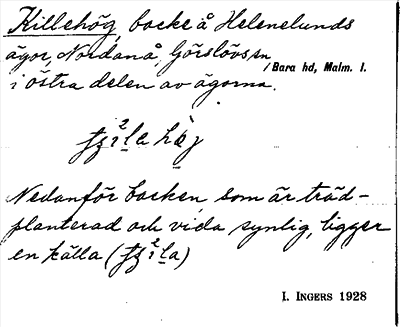 Killehög, backe å Helenelunds
ägor, Nordanå, Görslövs sn
/Bara hd, Malm. l.
i östra delen av ägorna.
Nedanför backen, som är träd-
planterad och vida synlig, ligger
en källa
I. INGERS 1928